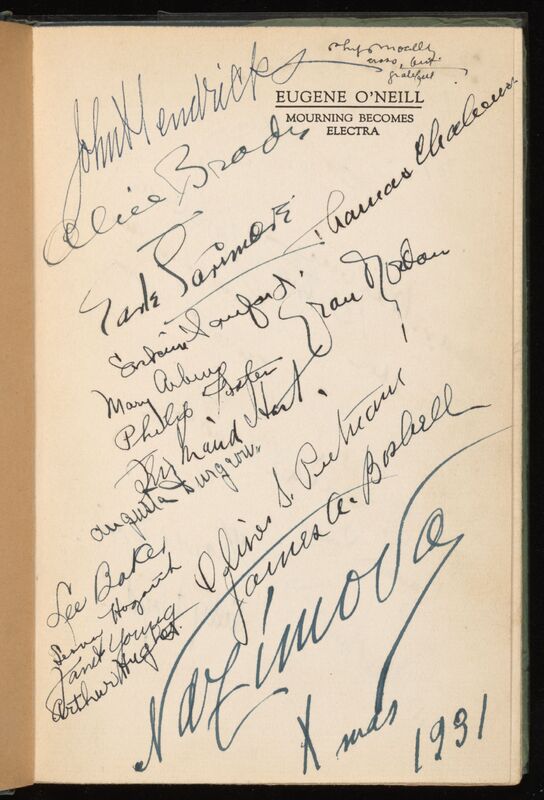 John Hendricks
cross, but
grateful
EUGENE O'NEILL
MOURNING BECOMES
ELECTRA
Alice Brady
Thomas Chalmers
Earle Larimore
Grant Gordon
Mary Arbenz
Philip Foster
Hart
Augusta Durgeon
Oliver S. Putnam
James A. Boshell
Lee Baker
Hogarth
Janet Young
Arthur Hughes
Nazimova
Xmas 1931